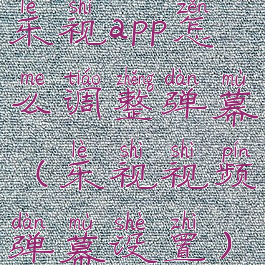 lè shì zěn
乐视app怎
me tiáo zhěng dàn mù
么调整弹幕
lè shì shì pín
（乐视视频
dàn mù shè zhì
弹幕设置）